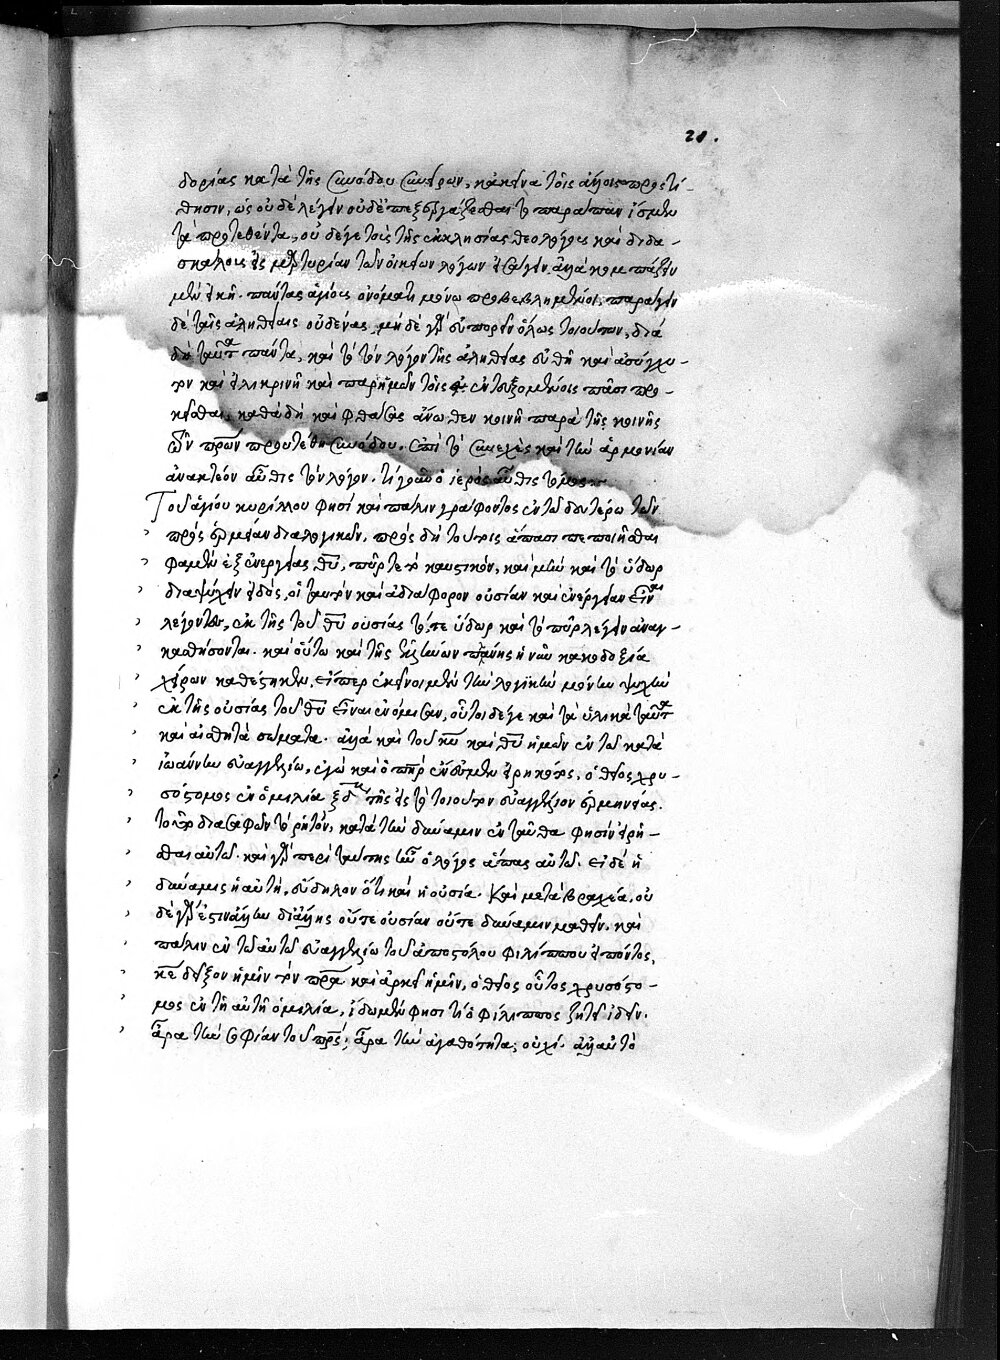 21.
δορίας κατὰ τῆς συνόδου συνείρων, κἀκεῖνα τοῖς ἀγίοις προστί-
θησιν, ὡς οὐδὲ λέγειν οὐδ' ἐπεξεργάζεσθαι τὸ παράπαν ἴσμεν
τὰ προτεθέντα, οὐ δέ γε τοῖς τῆς ἐκκλησίας θεολόγοις καὶ διδα-
σκάλοις εἰς μαρτυρίαν τῶν οἰκείων λόγων
μὲν εἰκῆ. πάντας ἁγίους ὀνόματι μόνω προβεβλημένοι, παράγειν
δὲ ταῖς ἀληθείαις οὐδένας, μὴ δὲ γὰρ εὐπορεῖν ὅλως τοιούτων, διὰ
δὴ ταῦτα πάντα, καὶ τὸ τὸν λόγον τῆς ἀληθείας εὐθῆ καὶ ἀσύγχυ-
τον καὶ εἰλικρινῆ καὶ παρ' ἡμῶν τοῖς ἐντευξομένοις πᾶσι προ-
κεῖσθαι, καθὰ δὴ καὶ φθάσας ἄνωθεν κοινῆ παρὰ τῆς κοινῆς
τῶν πατέρων προυτέθη συνόδου. ἐπὶ τὸ συνεχὲς καὶ τὴν ἁρμονίαν
ἀνακτέον αὖθις τὸν λόγον. τί γοῦν ὁ ἱερὸς αὖθις τόμος
Τοῦ ἁγίου κυρίλλου φησὶ καὶ πάλιν γράφοντος ἐν τῶ δευτέρω τῶν
πρὸς ἑρμείαν διαλογικῶν, πρὸς δὴ τούτοις ἅπασι πεποιῆσθαι
φαμὲν ἐξ ἐνεργείας θυ, πῦρ τε τὸ καυστικὸν, καὶ μὲν καὶ τὸ ὕδωρ
διαψύχειν εἰδὸς, οἱ ταυτὸν καὶ ἀδιάφορον οὐσίαν καὶ ἐνέργειαν εἶναι
λέγοντες, ἐκ τῆς τοῦ θυ οὐσίας τό, τε ὕδωρ καὶ τὸ πῦρ λέγειν ἀναγ-
κασθήσονται. καὶ οὕτω καὶ τῆς ἑλλήνων πλάνης ἡ νῦν κακοδοξία
χείρων καθέστηκεν, εἴπερ ἐκεῖνοι μὲν τὴν λογικὴν μόνην ψυχὴν
ἐκ τῆς οὐσίας τοῦ θυ εἶναι ἐνόμισαν, οὗτοι δέ γε καὶ τὰ ὑλικὰ ταῦτα
καὶ αἰσθητὰ σώματα. ἀλλὰ καὶ τοῦ κυ καὶ θυ ἡμῶν ἐν τῶ κατὰ
ἰωάννην εὐαγγελίω, ἐγὼ καὶ ὁ πηρ ἕν ἐσμεν εἰρηκότος, ὁ θεῖος χρυ-
σόστομος ἐν ὁμιλία ξδ τῆς εἰς τὸ τοιοῦτον εὐαγγέλιον ἑρμηνείας.
τοῦτο διασαφῶν τὸ ρητὸν, κατὰ τὴν δύναμιν ἐνταῦθα φησὶν εἰρῆ-
σθαι αὐτῶ. καὶ γὰρ περὶ ταύτης ἦν ὁ λόγος ἅπας αὐτῶ. εἰ δὲ ἡ
δύναμις ἡ αὐτὴ, εὔδηλον ὅτι καὶ ἡ οὐσία. Καὶ μετὰ βραχέα, οὐ
δὲ γάρ ἐστιν ἄλλην δι' ἄλλης οὔτε οὐσίαν οὔτε δύναμιν μαθεῖν. καὶ
πάλιν ἐν τῶ αὐτῶ εὐαγγελίω τοῦ ἀποστόλου φιλίππου εἰπόντος,
κε δεῖξον ἡμῖν τὸν πρα καὶ ἀρκεῖ ἡμῖν, ὁ θεῖος οὗτος χρυσόστο-
μος ἐν τῆ αὐτῆ ὁμιλία, ἴδωμεν φησὶ τί ὁ φίλιππος ζητεῖ ἰδεῖν.
ἆρα τὴν σοφίαν τοῦ πρς; ἆρα τὴν ἀγαθότητα; οὐχί. ἀλλ' αὐτὸ